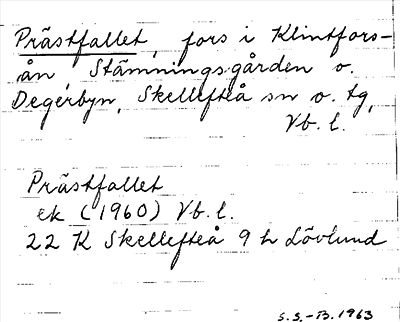 Prästfallet, fors i Klintfors-
ån Stämningsgården o.
Degerbyn, Skellefteå sn o. tg,
Vb. l.
Prästfallet
ek (1960) Vb. l.
22 K Skellefteå 9 h Lövlund
S.S.-B. 1963